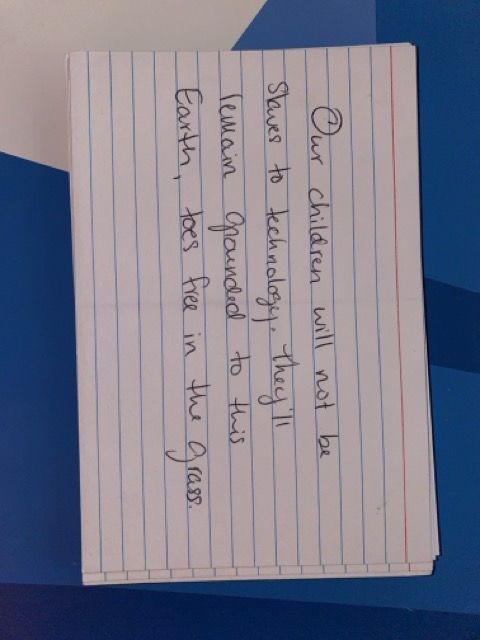 Our children will not be
Slaves to technology. they'll
remain grounded to this
Earth, toes free in the grass.